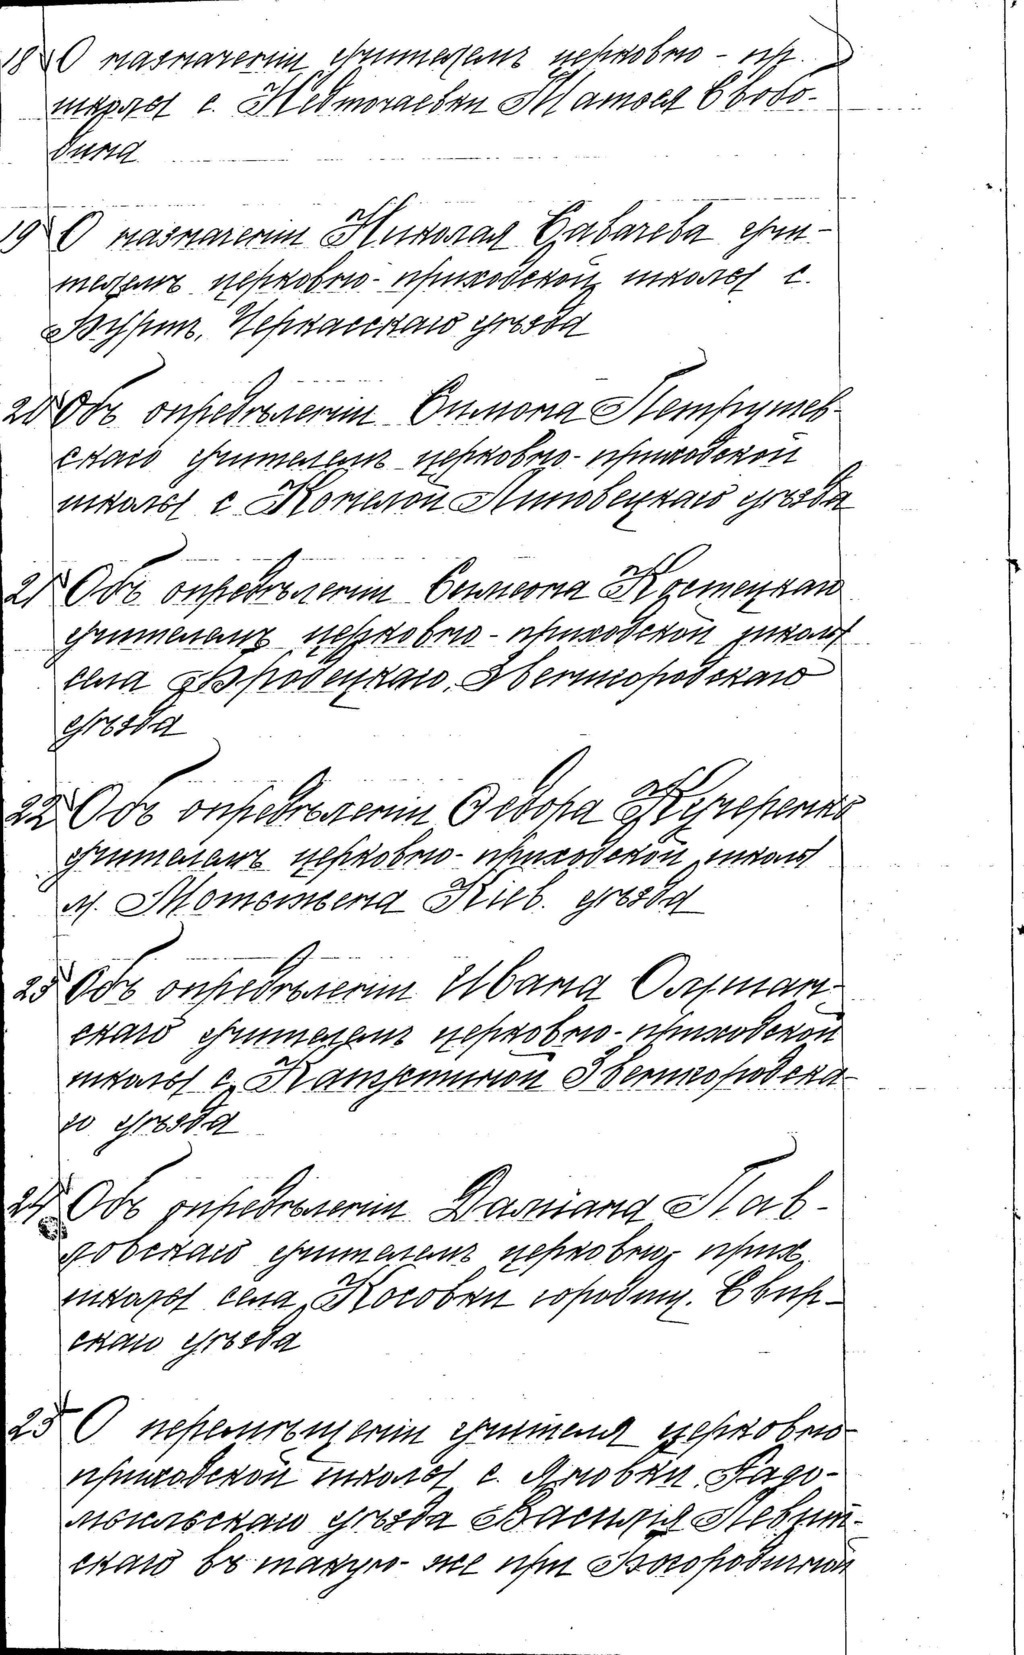 18 О назначеніи учителемъ церковно - пр.
школы с. Нетмочаевки Матвея Свобо-
дина
19 О назначеніи Николая Савачева учи-
телемъ церковно-приходской школы с.
Буртъ, Черкасскаго уѣзда
20 Объ опредѣленіи Симона Петрушев-
скаго учителемъ церковно-приходской
школы с Конелой Липовецкаго уѣзда
21 Объ опредѣленіи Симеона Костецкаго
учителемъ церковно-приходской школы
села Бродецкаго, Звенигородскаго
уѣзда
22 Объ опредѣленіи Ѳедора Кучеренко
учителемъ церковно-приходской школы
м. Мотыжена Кіев. уѣзда
23 Объ опредѣленіи Ивана Олтаж-
скаго учителемъ церковно-приходской
школы с. Звенигородска-
го уѣзда
24 Объ опредѣленіи Даміана Пав-
ловскаго учителемъ церковно, прих.
школы села Косовки городищ. Сквир-
скаго уѣзда
25 О перемѣщеніи учителя церковно-
приходской школы с. Яновки, Радо-
мысльскаго уѣзда Василія Левит-
скаго въ такую-же при Богородичной